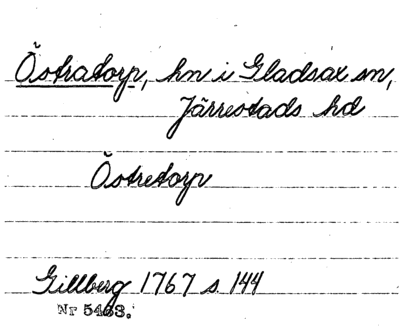 Östratorp, hn i Gladsax sn,
Järrestads hd
Östretorp
Gillberg 1767 s. 144
Nr 5463.